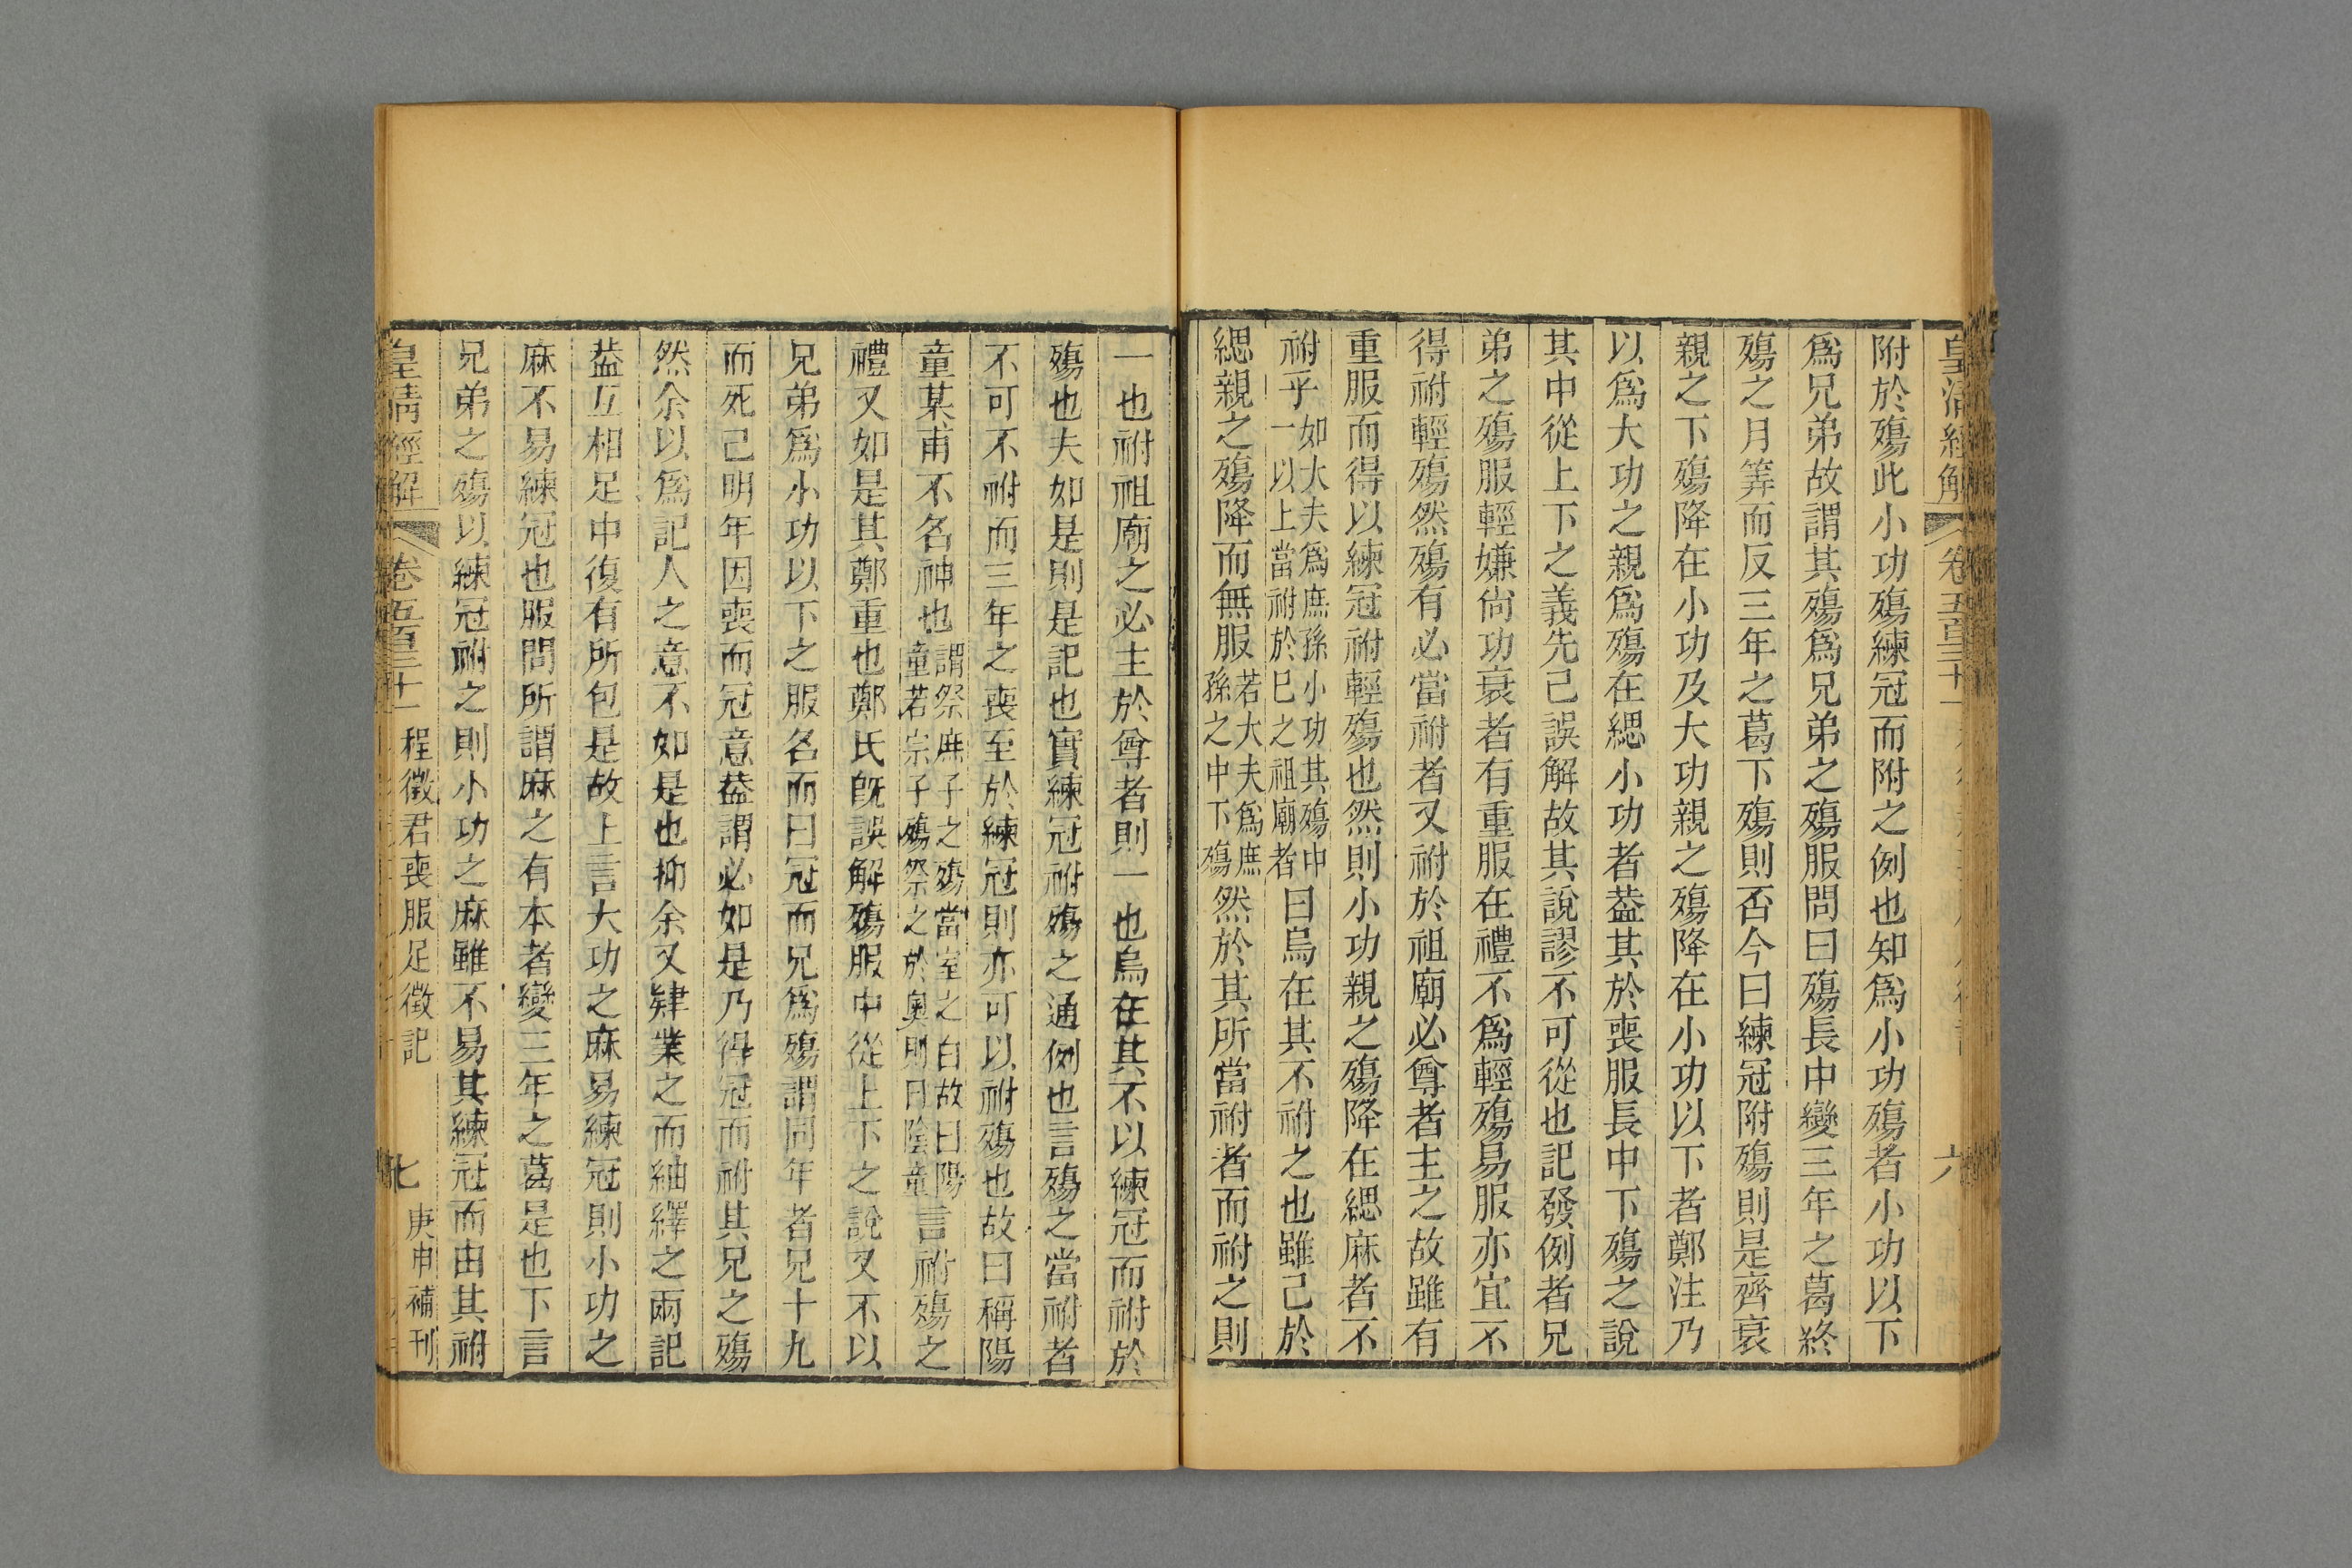 皇清經解 卷五百三十一 六
附於殤此小功殤練冠而附之例也知爲小功殤者小功以下
爲兄弟故謂其殤爲兄弟之殤服問曰殤長中變三年之葛終
殤之月筭而反三年之葛下殤則否今曰練冠附殤則是齊衰
親之下殤降在小功及大功親之殤降在小功以下者鄭注乃
以爲大功之親爲殤在緦小功者葢其於喪服長中下殤之說
其中從上下之義先己誤解故其說謬不可從也記發例者兄
弟之殤服輕嫌尙功衰者有重服在禮不爲輕殤易服亦宜不
得祔輕殤然殤有必當祔者又祔於祖廟必尊者主之故雖有
重服而得以練冠祔輕殤也然則小功親之殤降在緦麻者不
祔乎如大夫爲庶孫小功其殤中一以上當祔於巳之祖廟者曰烏在其不祔之也雖己於
緦親之殤降而無服若大夫爲庶孫之中下殤然於其所當祔者而祔之則
一也祔祖廟之必主於尊者則一也烏在其不以練冠而祔於
殤也夫如是則是記也實練冠祔殤之通例也言殤之當祔者
不可不祔而三年之喪至於練冠則亦可以祔殤也故曰稱陽
童某甫不名神也謂祭庶子之殤當室之白故曰陽童若宗子殤祭之於奧則曰陰童言祔殤之
禮又如是其鄭重也鄭氏旣誤解殤服中從上下之說又不以
兄弟爲小功以下之服名而曰冠而兄爲殤謂同年者兄十九
而死己明年因喪而冠意葢謂必如是乃得冠而祔其兄之殤
然余以爲記人之意不如是也抑余又肄業之而紬繹之兩記
葢互相足中復有所包是故上言大功之麻易練冠則小功之
麻不易練冠也服問所謂麻之有本者變三年之葛是也下言
兄弟之殤以練冠祔之則小功之麻雖不易其練冠而由其祔
皇清經解 卷五百三十一 程徵君喪服足徵記 七 庚申補刊